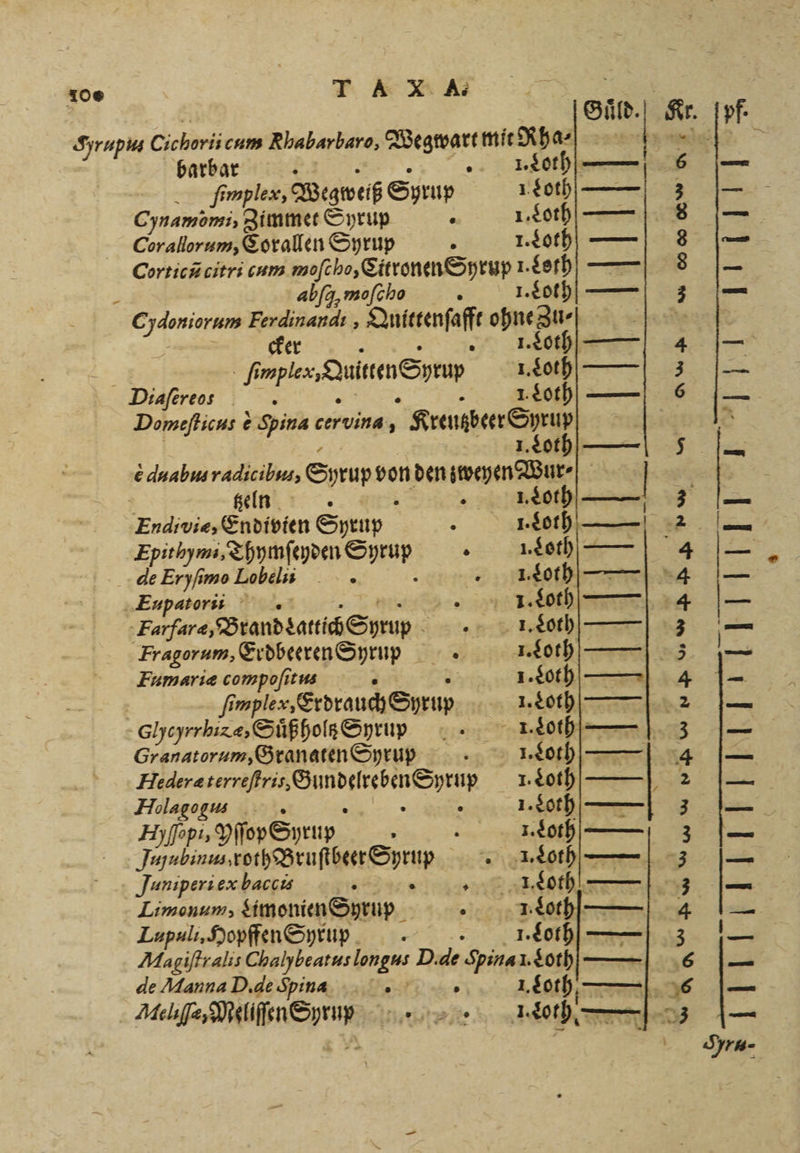 10. T A X A.
Gůld. Kr. pf.
Syrupus Cichorii cum Rhabarbaro, Wegwart mit Rha-
barbar . . . . 1.Loth —— 6 —
simplex, Wegweiß Syrup 1 Loth —— 3 —
Cynamomi, Zimmet Syrup . 1.Loth —— 8 —
Corallorum, Corallen Syrup . 1.Loth —— 8 —
Corticū citri cum moscho, Citronen Syrup 1.Loth —— 8 —
absq; moscho . 1.Loth —— 3 —
Cydoniorum Ferdinandi, Quittensafft ohne Zu-
cker . . . 1.Loth —— 4 —
simplex, Quitten Syrup 1.Loth —— 3 —
Diasereos . . . . 1.Loth —— 6 —
Domesticus è Spina cervina, Kreutzbeer Syrup
1.Loth —— 5 —
è duabus radicibus, Syrup von den zweyen Wur-
tzeln . . . 1.Loth —— 3 —
Endiviæ, Endivien Syrup . 1.Loth —— 2 —
Epithymi, Thymseyden Syrup . 1.Loth —— 4 —
de Erysimo Lobelii . . . 1.Loth —— 4 —
Eupatorii . . . . 1.Loth —— 4 —
Farfaræ, Brandlattich Syrup . 1.Loth —— 3 —
Fragorum, Erdbeeren Syrup . 1.Loth —— 3 —
Fumariæ compositus . . 1.Loth —— 4 —
simplex, Erdrauch Syrup 1.Loth —— 2 —
Glycyrrhizæ, Sůßholtz Syrup . 1.Loth —— 3 —
Granatorum, Granaten Syrup . 1.Loth —— 4 —
Hederæ terrestris, Gundelreben Syrup 1.Loth —— 2 —
Holagogus . . . . 1.Loth —— 3 —
Hyssopi, Yssop Syrup . . 1.Loth —— 3 —
Jujubinus, roth Brustbeer Syrup . 1.Loth —— 3 —
Juniperi ex baccis . . . 1.Loth —— 3 —
Limonum, Limonien Syrup . 1.Loth —— 4 —
Lupuli, Hopffen Syrup . . 1.Loth —— 3 —
Magistralis Chalybeatus longus D. de Spina 1.Loth —— 6 —
de Manna D. de Spina . . 1.Loth —— 6 —
Melissæ, Melissen Syrup . . 1.Loth —— 3 —
Syru-